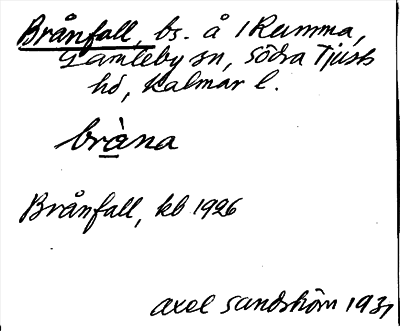 Brånfall, bs. å 1 Ramma,
Gamleby sn, Södra Tjusts
hd, Kalmar l.
bràna
Brånfall, kb 1926
Axel Sandström 1931